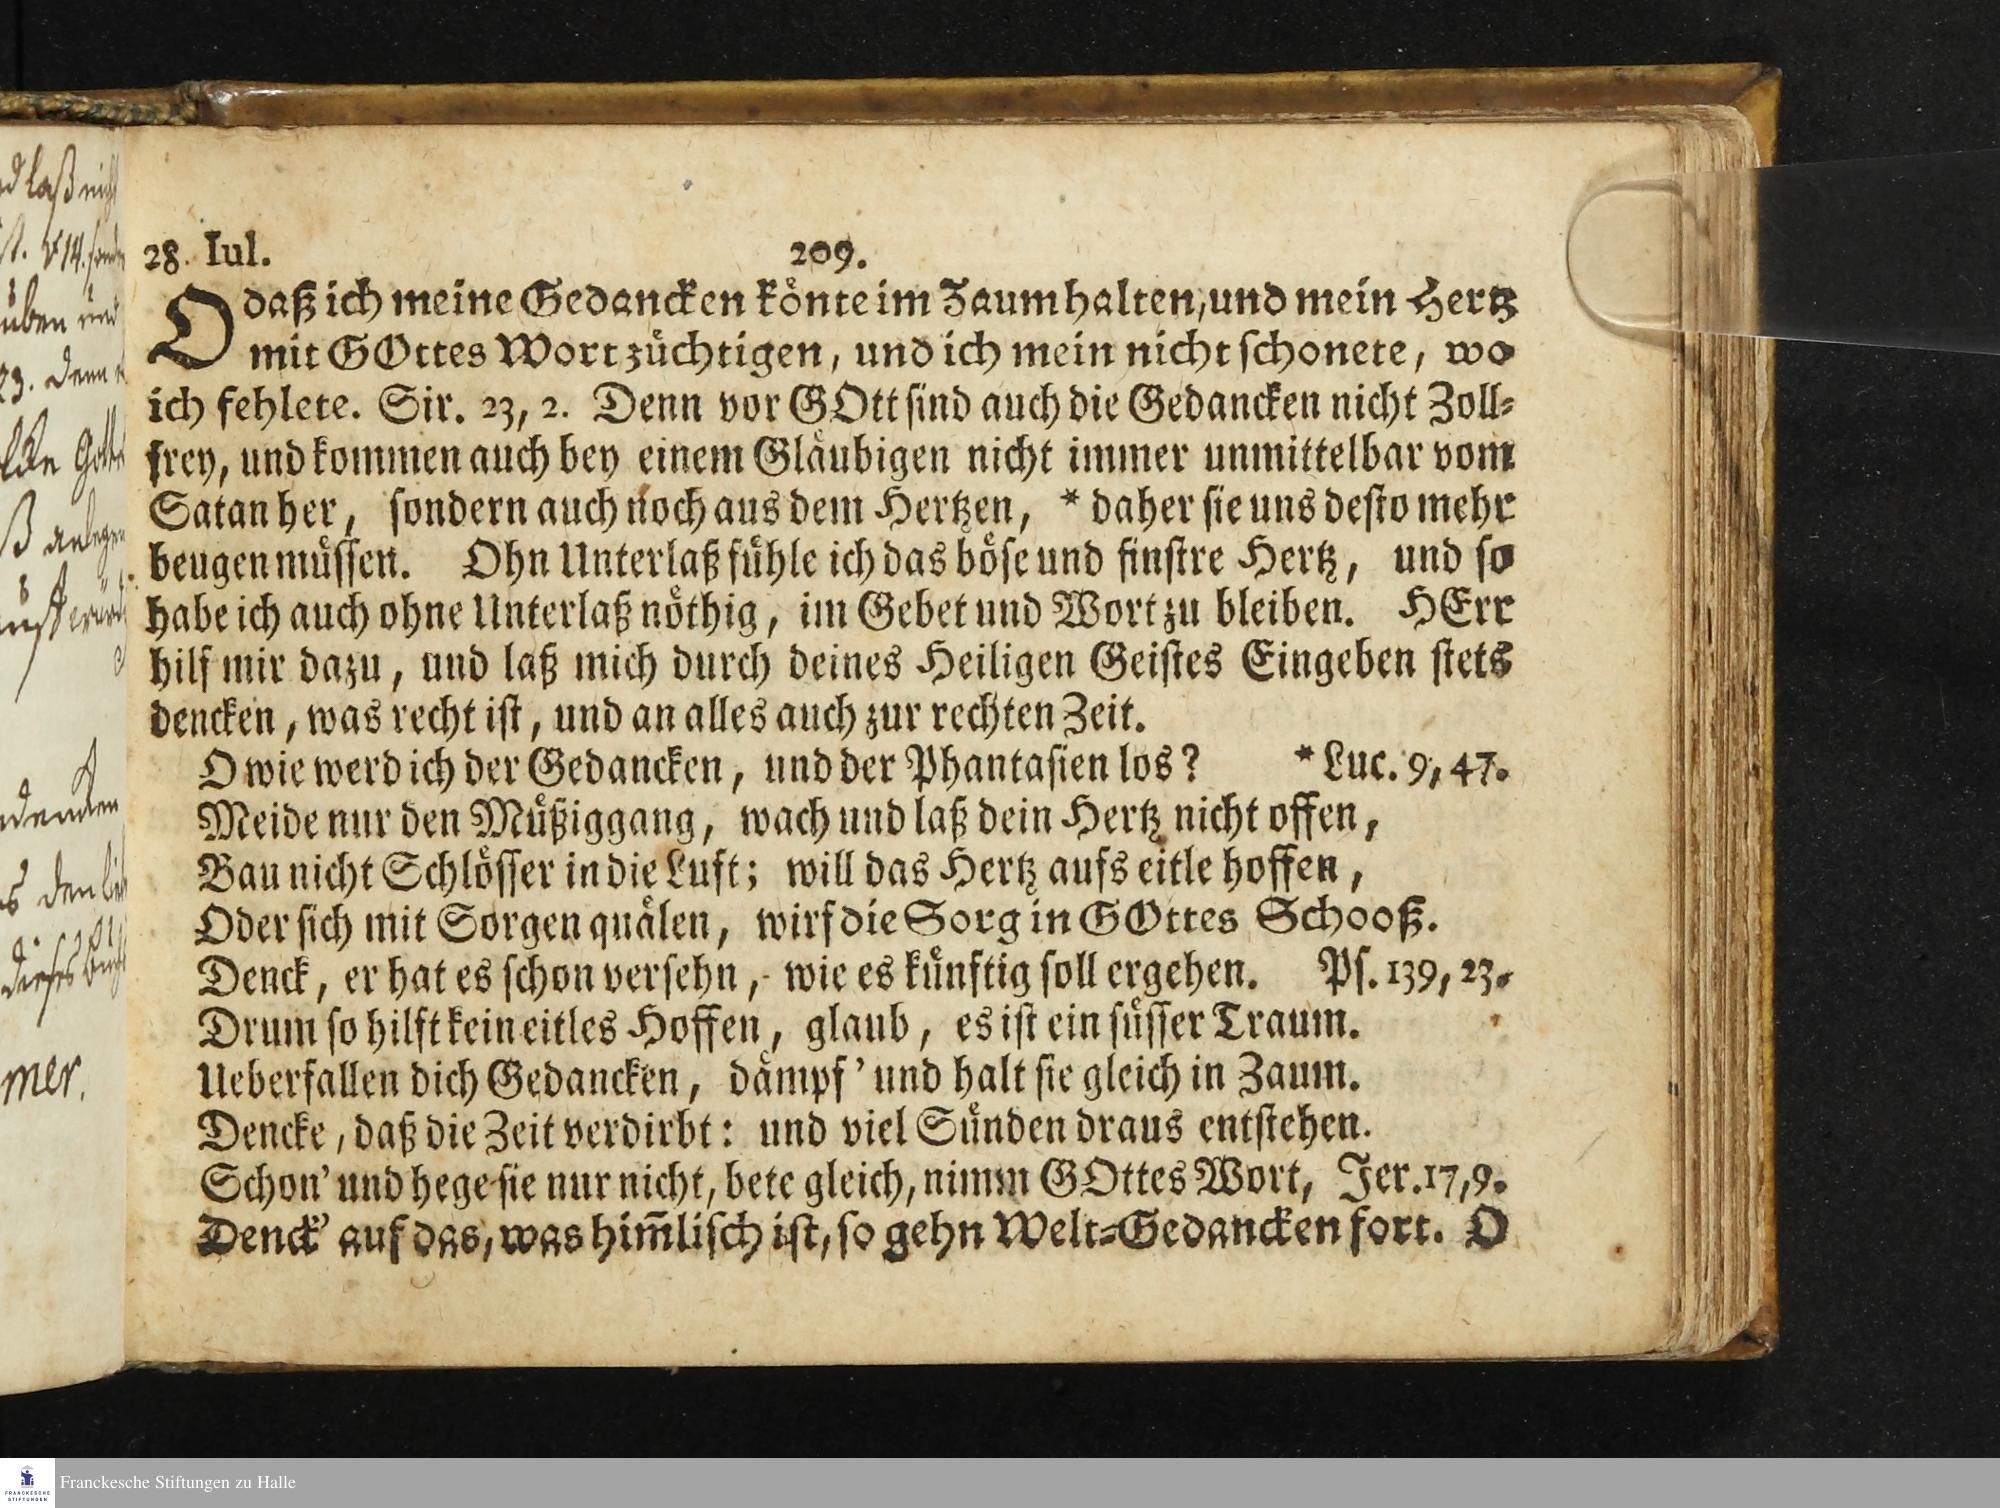 28. Iul. 209.
O daß ich meine Gedancken könte im Zaum halten, und mein Hertz
mit GOttes Wort züchtigen, und ich mein nicht schonete, wo
ich fehlete. Sir. 23, 2. Denn vor GOtt sind auch die Gedancken nicht Zoll-
frey, und kommen auch bey einem Gläubigen nicht immer unmittelbar vom
Satan her, sondern auch noch aus dem Hertzen, * daher sie uns desto mehr
beugen müssen. Ohn Unterlaß fühle ich das böse und finstre Hertz, und so
habe ich auch ohne Unterlaß nöthig, im Gebet und Wort zu bleiben. HErr
hilf mir dazu, und laß mich durch deines Heiligen Geistes Eingeben stets
dencken, was recht ist, und an alles auch zur rechten Zeit.
O wie werd ich der Gedancken, und der Phantasien los? * Luc. 9, 47.
Meide nur den Müßiggang, wach und laß dein Hertz nicht offen,
Bau nicht Schlösser in die Luft; will das Hertz aufs eitle hoffen,
Oder sich mit Sorgen quälen, wirf die Sorg in GOttes Schooß.
Denck, er hat es schon versehn, wie es künftig soll ergehen. Ps. 139, 23.
Drum so hilft kein eitles Hoffen, glaub, es ist ein süsser Traum.
Ueberfallen dich Gedancken, dämpf' und halt sie gleich in Zaum.
Dencke, daß die Zeit verdirbt: und viel Sünden draus entstehen.
Schon' und hege sie nur nicht, bete gleich, nimm GOttes Wort, Jer. 17, 9.
Denck' auf das, was him̄lisch ist, so gehn Welt-Gedancken fort. O
laß nicht
v 14.
üben und
23. denn
anlegen
mer.
FRANCKESCHE
STIFTUNGEN
Franckesche Stiftungen zu Halle